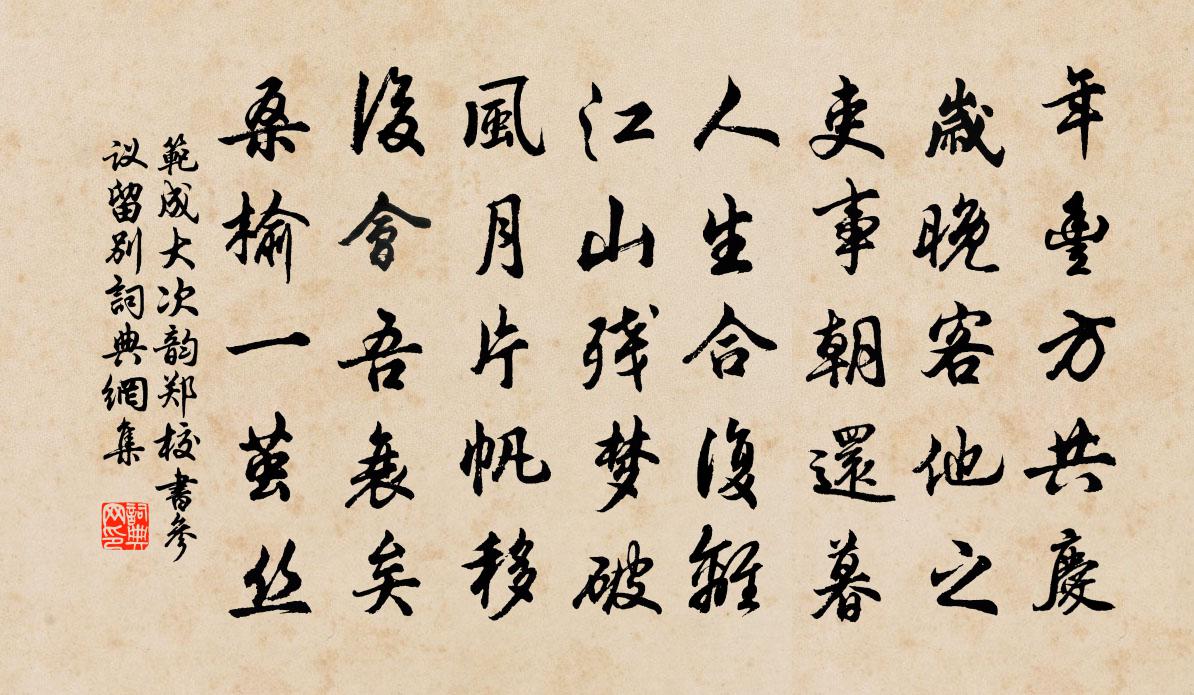 年豐方共慶
歲晚客他之
吏事朝還暮
人生合復離
江山残梦破
風月片帆移
後會吾衰矣
桑榆一茧丝
範成大次韵郑校書參
议留别詞典網集
詞典
网印